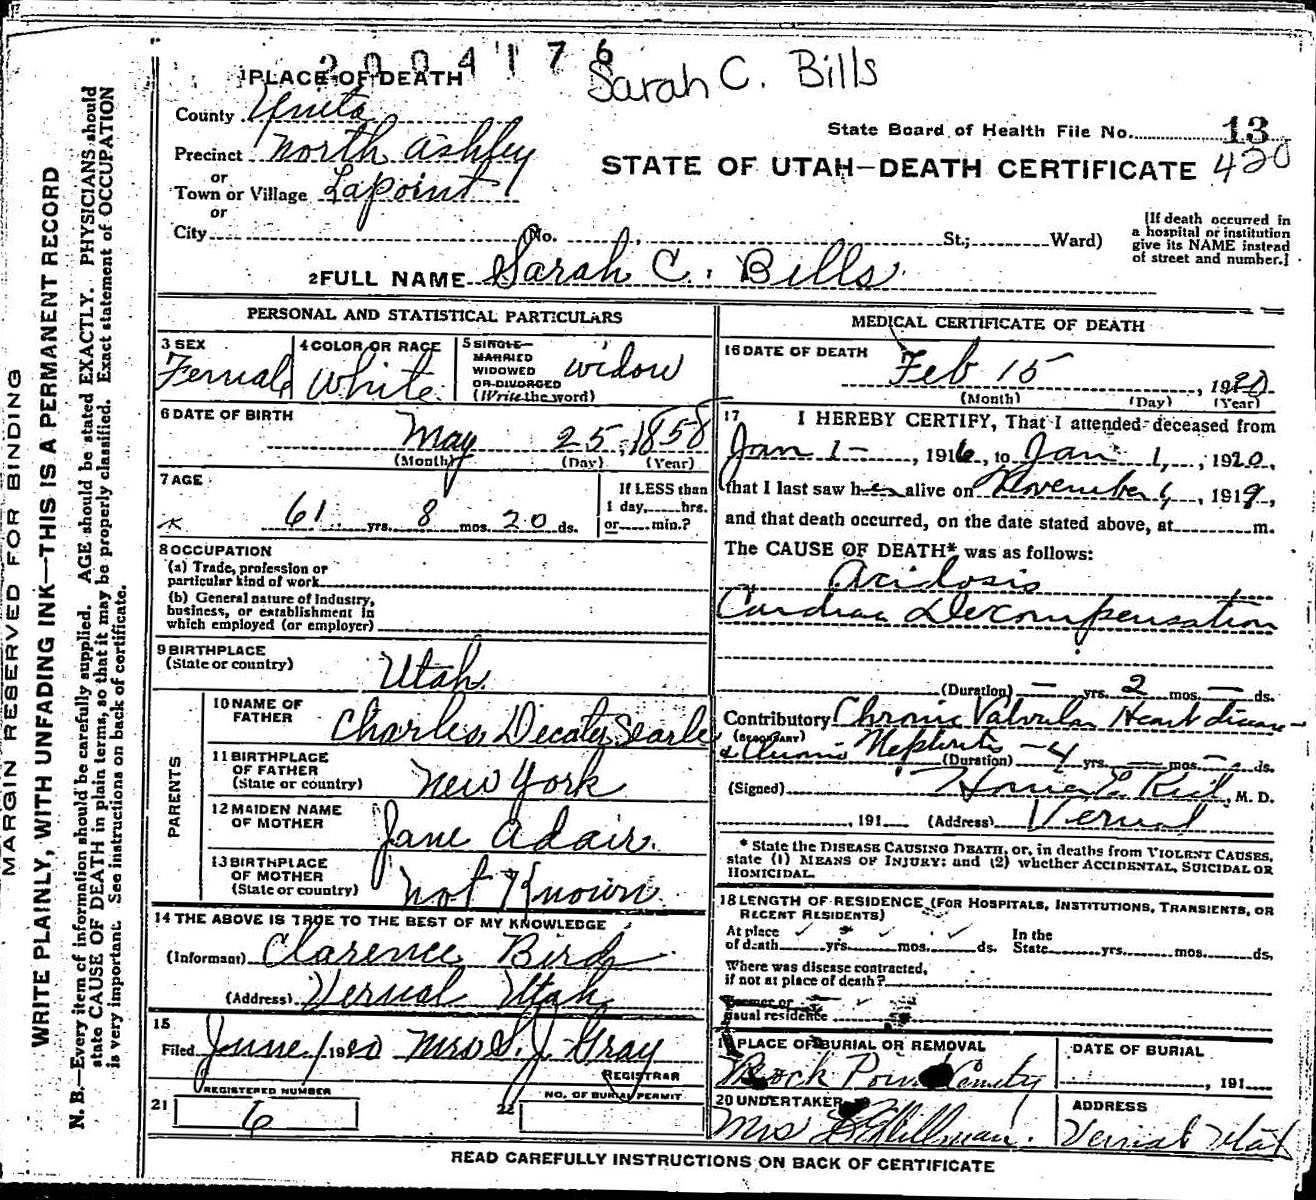 2004176
Sarah C. Bills
1 PLACE OF DEATH
County Unita
State Board of Health File No. 13
Precinct North Ashley
STATE OF UTAH—DEATH CERTIFICATE 420
or
Town or Village Lapoint
or
City No. St.; Ward)
[If death occurred in
a hospital or institution
give its NAME instead
of street and number.]
2 FULL NAME Sarah C. Bills
PERSONAL AND STATISTICAL PARTICULARS
3 SEX
Female
4 COLOR OR RACE
White
5 SINGLE
MARRIED
WIDOWED
OR DIVORCED
(Write the word)
widow
6 DATE OF BIRTH
May 25, 1858
(Month) (Day) (Year)
7 AGE
61 yrs. 8 mos. 20 ds.
If LESS than
1 day, hrs.
or min.?
8 OCCUPATION
(a) Trade, profession or
particular kind of work
(b) General nature of Industry,
business, or establishment in
which employed (or employer)
9 BIRTHPLACE
(State or country)
Utah
PARENTS
10 NAME OF
FATHER
Charles Decatur Searle
11 BIRTHPLACE
OF FATHER
(State or country)
New York
12 MAIDEN NAME
OF MOTHER
Jane Adair.
13 BIRTHPLACE
OF MOTHER
(State or country)
not Known
14 THE ABOVE IS TRUE TO THE BEST OF MY KNOWLEDGE
(Informant) Clarence Birds
(Address) Vernal Utah
15
Filed June 1 1920 Mrs S. J. Gray
REGISTRAR
REGISTERED NUMBER
21 6
NO. OF BURIAL PERMIT
22
MEDICAL CERTIFICATE OF DEATH
16 DATE OF DEATH
Feb 15, 1920
(Month) (Day) (Year)
17 I HEREBY CERTIFY, That I attended deceased from
Jan 1—, 1916, to Jan 1, 1920,
that I last saw her alive on November 6, 1919,
and that death occurred, on the date stated above, at m.
The CAUSE OF DEATH* was as follows:
Acidosis
Cardiac Decompensation
(Duration) — yrs. 2 mos. — ds.
Contributory Chronic Valvular Heart disease
(SECONDARY)
& Chronic Nephritis
(Duration) — 4 yrs. — mos. — ds.
(Signed) M. D.
, 191 (Address) Vernal
* State the DISEASE CAUSING DEATH, or, in deaths from VIOLENT CAUSES,
state (1) MEANS OF INJURY; and (2) whether ACCIDENTAL, SUICIDAL OR
HOMICIDAL.
18 LENGTH OF RESIDENCE (FOR HOSPITALS, INSTITUTIONS, TRANSIENTS, OR
RECENT RESIDENTS)
At place
of death yrs. mos. ds.
In the
State yrs. mos. ds.
Where was disease contracted,
if not at place of death?
Former or
usual residence
19 PLACE OF BURIAL OR REMOVAL
Rock Point Cemetery
DATE OF BURIAL
, 191
20 UNDERTAKER
Mrs Hillman.
ADDRESS
Vernal Utah
READ CAREFULLY INSTRUCTIONS ON BACK OF CERTIFICATE
MARGIN RESERVED FOR BINDING
WRITE PLAINLY, WITH UNFADING INK—THIS IS A PERMANENT RECORD
N. B.—Every item of information should be carefully supplied. AGE should be stated EXACTLY. PHYSICIANS should
state CAUSE OF DEATH in plain terms, so that it may be properly classified. Exact statement of OCCUPATION
is very important. See instructions on back of certificate.